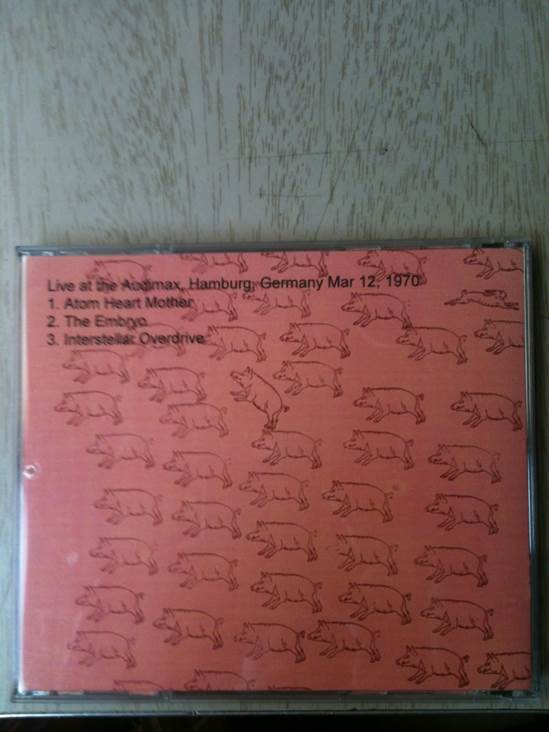 Live at the Audimax, Hamburg, Germany Mar 12, 1970
1. Atom Heart Mother
2. The Embryo
3. Interstellar Overdrive